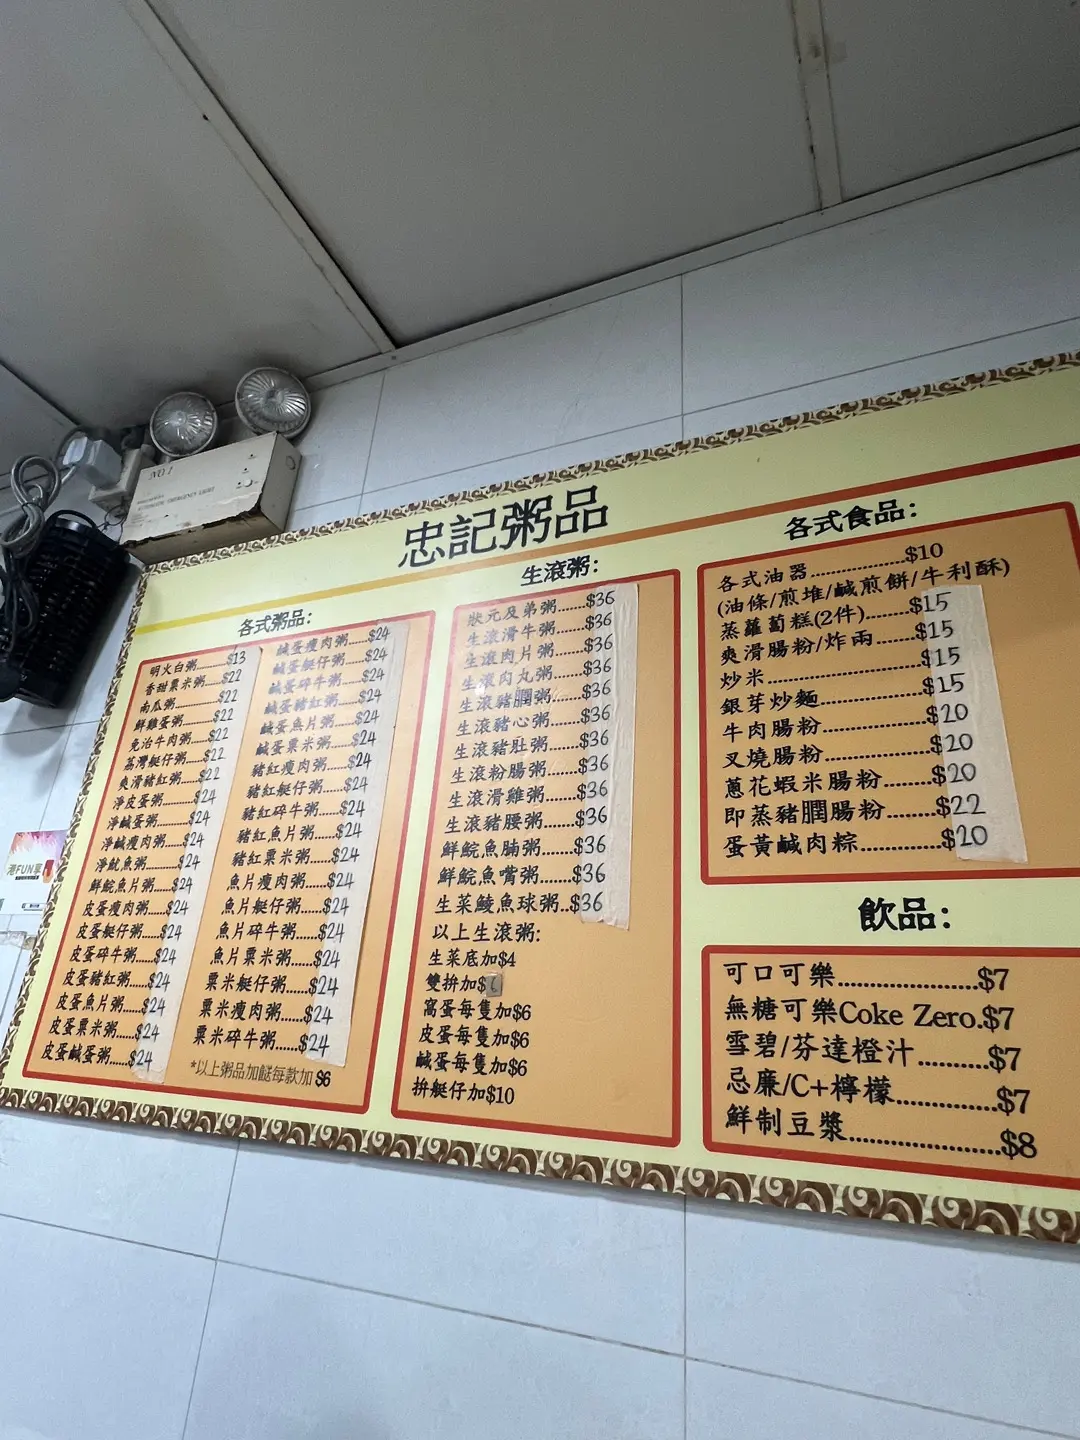 NO 1
AUTOMATIC EMERGENCY LIGHT
港FUN享
忠記粥品
各式粥品:
明火白粥.........$13
香甜粟米粥...$22
南瓜粥...........$22
鮮雞蛋粥......$22
免治牛肉粥...$22
荔灣艇仔粥...$22
爽滑豬紅粥...$22
淨皮蛋粥......$24
淨鹹蛋粥......$24
淨鹹瘦肉粥...$24
淨魷魚粥......$24
鮮鯇魚片粥...$24
皮蛋瘦肉粥....$24
皮蛋艇仔粥....$24
皮蛋碎牛粥....$24
皮蛋豬紅粥....$24
皮蛋魚片粥....$24
皮蛋粟米粥....$24
皮蛋鹹蛋粥.....$24
鹹蛋瘦肉粥....$24
鹹蛋艇仔粥....$24
鹹蛋碎牛粥....$24
鹹蛋豬紅粥....$24
鹹蛋魚片粥....$24
鹹蛋粟米粥....$24
豬紅瘦肉粥....$24
豬紅艇仔粥....$24
豬紅碎牛粥....$24
豬紅魚片粥....$24
豬紅粟米粥....$24
魚片瘦肉粥.....$24
魚片艇仔粥.....$24
魚片碎牛粥.....$24
魚片粟米粥.....$24
粟米艇仔粥.....$24
粟米瘦肉粥.....$24
粟米碎牛粥.....$24
*以上粥品加餸每款加 $6
生滾粥:
狀元及弟粥......$36
生滾滑牛粥......$36
生滾肉片粥......$36
生滾肉丸粥......$36
生滾豬膶粥......$36
生滾豬心粥......$36
生滾豬肚粥......$36
生滾粉腸粥......$36
生滾滑雞粥......$36
生滾豬腰粥......$36
鮮鯇魚腩粥......$36
鮮鯇魚嘴粥......$36
生菜鯪魚球粥..$36
以上生滾粥:
生菜底加$4
雙拚加$
窩蛋每隻加$6
皮蛋每隻加$6
鹹蛋每隻加$6
拚艇仔加$10
各式食品:
各式油器..............$10
(油條/煎堆/鹹煎餅/牛利酥)
蒸蘿蔔糕(2件).......$15
爽滑腸粉/炸兩.......$15
炒米.....................$15
銀芽炒麵..............$15
牛肉腸粉..............$20
叉燒腸粉..............$20
蔥花蝦米腸粉......$20
即蒸豬膶腸粉......$22
蛋黃鹹肉粽..........$20
飲品:
可口可樂.................$7
無糖可樂Coke Zero.$7
雪碧/芬達橙汁.........$7
忌廉/C+檸檬............$7
鮮制豆漿.................$8